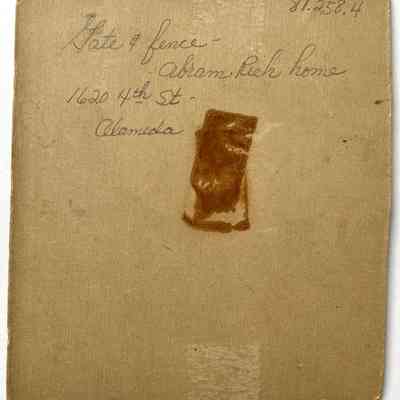 81.258.4
Gate & fence -
Abram Rich home
1620 4th St -
Alameda